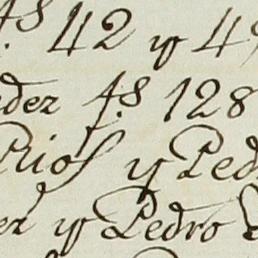 f.s 42 y 4
dez f.s 128
Rios y Ped
ez y Pedro